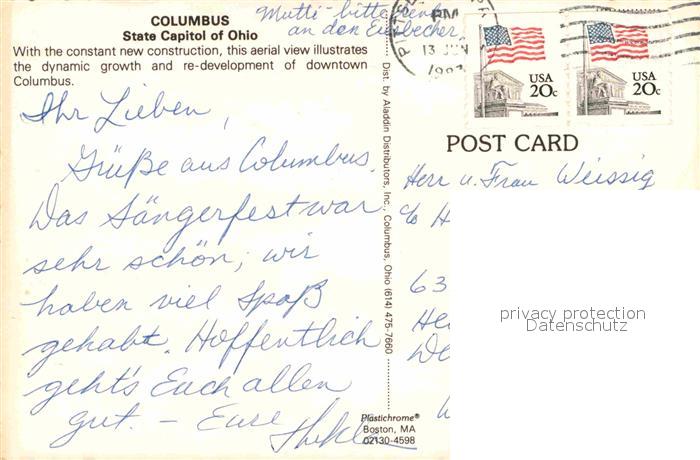 COLUMBUS
State Capitol of Ohio
With the constant new construction, this aerial view illustrates
the dynamic growth and re-development of downtown
Columbus.
Mutti - bitte
an den Eisbecher
Ihr Lieben,
Grüße aus Columbus.
Das Sängerfest war
sehr schön; wir
haben viel Spaß
gehabt. Hoffentlich
geht's Euch allen
gut. - Eure
Dist. by Aladdin Distributors, Inc. Columbus, Ohio (614) 475-7660
Plastichrome®
Boston, MA
02130-4598
PM
13 JUN
USA
20c
USA
20c
POST CARD
Herr u. Frau Weissig
c/o H
63
privacy protection
Datenschutz